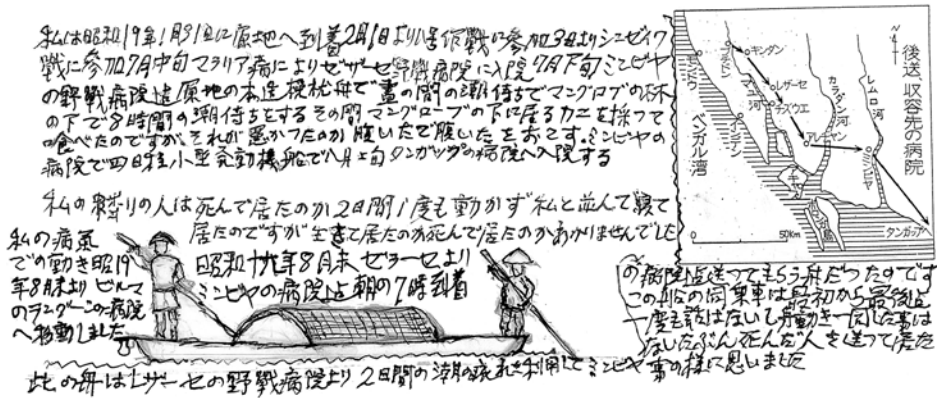 私は昭和19年1月31日に原地へ到着2月1日よりは号作戦に参加3日よりシンゼイワ
戦に参加7月中旬マラリア病によりゼザーセ野戦病院に入院7月下旬ミンビヤ
の野戦病院迠原地の本造模松舟で晝の間の潮待ちでマングロブの林
の下で8時間の潮待ちをするその間マングロブの下に居るカニを採って
喰べたのですが、それが悪かったのか腹いたで腹いたをおこす。ミンビヤの
病院で四日程小型発動機船で八月上旬タンガップの病院へ入院する
私の隣りの人は死んで居たのか2日間1度も動かず私と並んで寝て
居たのですが生きて居たのか死んで居たのかわかりませんでした
私の病氣
での動き昭19
年8月末より ビルマ
のラングーンの病院
へ移動しました
昭和十九年8月末 ゼラーセより
ミンビヤの病院迠朝の7時到着
の病院迠送ってもらう舟だったのです
この船の同乗車は最初から最後迠
一度も話はないし身動き一回した事は
ないたぶん死んだ人を送って居た
事の様に思いました
此の舟はレザーセの野戦病院より2日間の潮の流れを利用してミンビヤ
後送、収容先の病院
N
キンダン
ブチドン
モンドウ
レザーセ
マユ河
カラダン河
レムロ河
インデン
アレサヤン
ミンビヤ
アキャブ
ベンガル湾
タンガップへ
0
50km